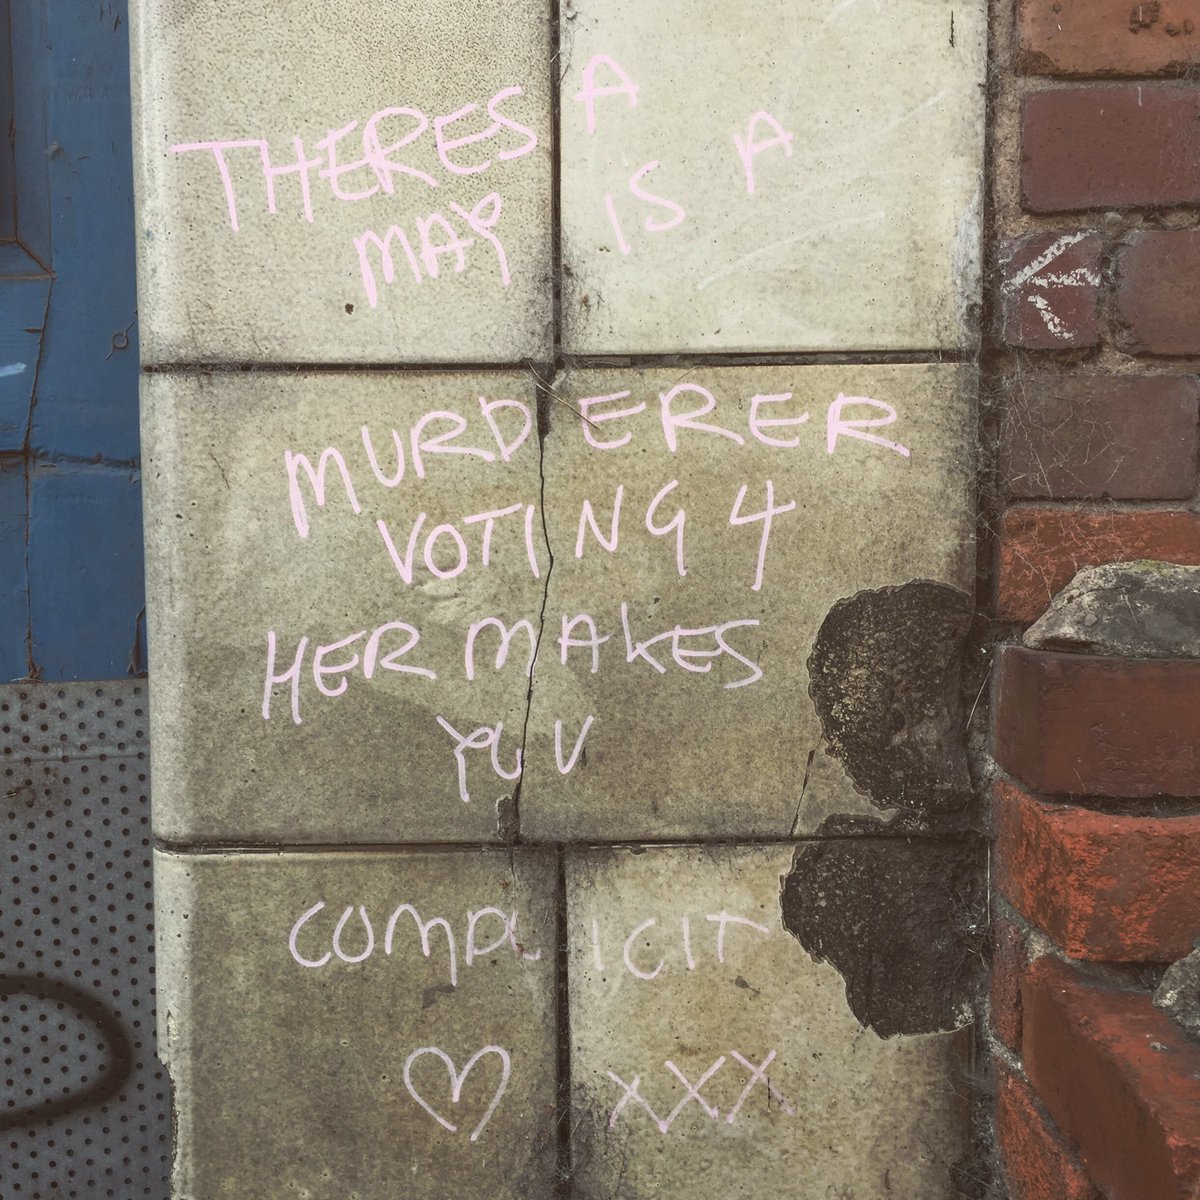 THERESA
MAY IS A
MURDERER
VOTING 4
HER MAKES
YOU
COMPLICIT
♡ XXX